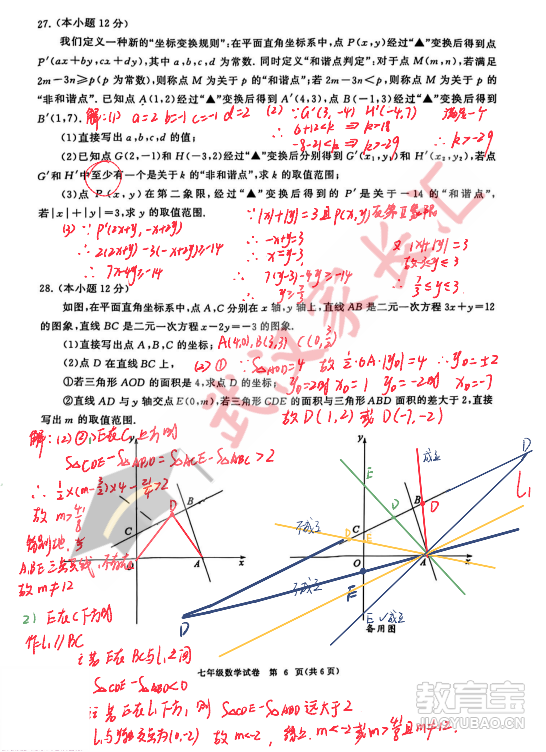 27.(本小题12分)
我们定义一种新的“坐标变换规则”:在平面直角坐标系中,点P(x,y)经过“▲”变换后得到点
P′(ax+by,cx+dy),其中a,b,c,d为常数.同时定义“和谐点判定”:对于点M(m,n),若满足
2m-3n≥p(p为常数),则称点M为关于p的“和谐点”;若2m-3n<p,则称点M为关于p的
“非和谐点”.已知点A(1,2)经过“▲”变换后得到A′(4,3),点B(-1,3)经过“▲”变换后得到
B′(1,7).
解:(1) a=2 b=1 c=-1 d=2
(2) ∵G′(3,-4) H′(-4,7)
(1)直接写出a,b,c,d的值;
∴ 6+12<k ⇒ k>18
-8-21<k ⇒ k>-29
∴ k>-29
(2)已知点G(2,-1)和H(-3,2)经过“▲”变换后分别得到G′(x₁,y₁)和H′(x₂,y₂),若点
G′和H′中至少有一个是关于k的“非和谐点”,求k的取值范围;
(3)点P(x,y)在第二象限,经过“▲”变换后得到的P′是关于-14的“和谐点”,
若|x|+|y|=3,求y的取值范围.
∵|x|+|y|=3且P(x,y)在第二象限
(3) ∵P′(2x+y,-x+2y)
∴ 2(2x+y)-3(-x+2y)≥-14
∴ 7x-4y≥-14
∴ -x+y=3
∴ x=y-3
∴ 7(y-3)-4y≥-14
∴ y≥7/3
又|x|+|y|=3
∴ 7/3≤y≤3
28.(本小题12分)
如图,在平面直角坐标系中,点A,C分别在x轴,y轴上,直线AB是二元一次方程3x+y=12
的图象,直线BC是二元一次方程x-2y=-3的图象.
(1)直接写出点A,B,C的坐标; A(4,0),B(3,3) C(0,3/2)
(2)点D在直线BC上,
(2)① ∵S△AOD=4 故 1/2·OA·|y₀|=4 ∴y₀=±2
①若三角形AOD的面积是4,求点D的坐标;
y₀=2时 x₀=1 y₀=-2时 x₀=-7
②直线AD与y轴交点E(0,m),若三角形CDE的面积与三角形ABD面积的差大于2,直接
写出m的取值范围.
故D(1,2)或D(-7,-2)
解:(2)② 1)E在C上方时
S△CDE-S△ABD=S△ACE-S△ABC>2
∴ 1/2×(m-3/2)×4-21/4>2
故 m>41/8
特别地,当
A,B,E三点共线,不成立
故m≠12
2) E在C下方时
作l₁//BC
i 若E在BC与l₁之间
S△CDE-S△ABD<0
ii 若E在l₁下方,则 S△CDE-S△ABD 远大于2
l₁与y轴交点为(0,-2) 故m<-2 综上 m<-2或m>41/8且m≠12.
y
B
C
D
O
A
x
y
E
成立
D
l₁
不成立
C
D
E
D
B
O
A
x
不成立
E
D
E ✓成立
备用图
七年级数学试卷 第 6 页(共6页)
武汉家长汇
教育宝
JIAOYUBAO.COM